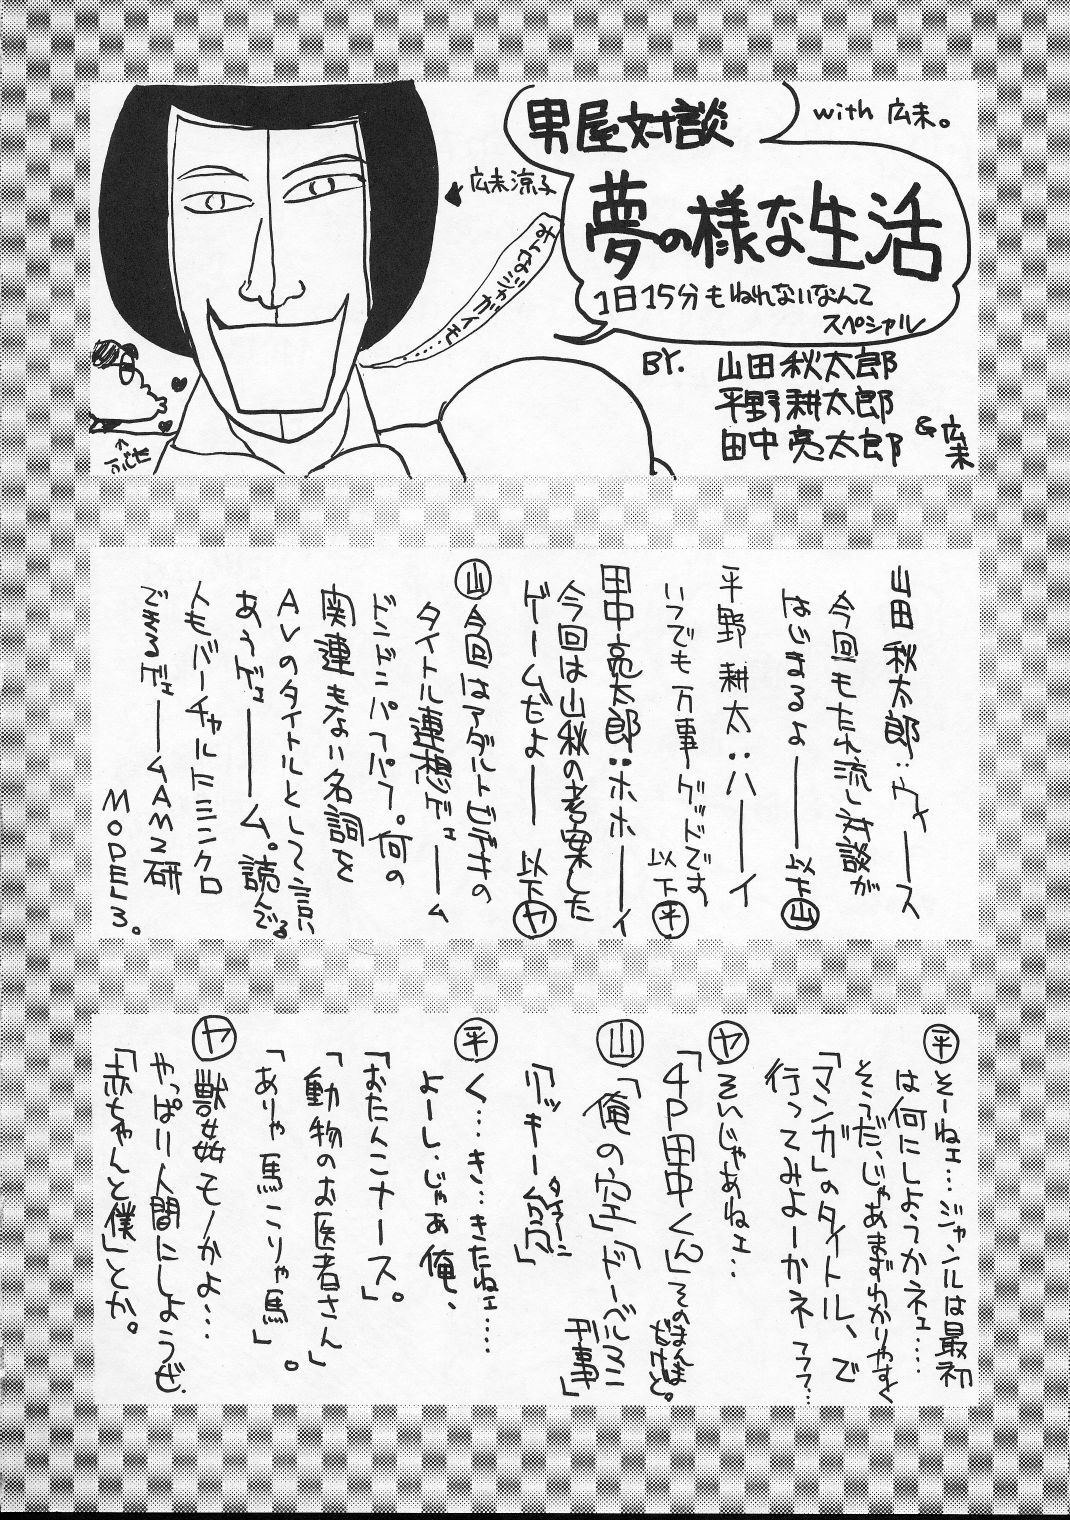 男屋対談
with 広末。
夢の様な生活
1日15分もねれないなんて
スペシャル
広末涼子
BY. 山田秋太郎
平野耕太郎
田中亮太郎
&広末
山田秋太郎:ウィーース
今回もたれ流し対談が
はじまるよーーー 以下㊤山
平野耕太:ハーーイ
いつでも万事グッドです
以下平
田中亮太郎:ホホーーイ
今回は山秋の考案した
ゲームだよーー 以下ヤ
山 今回はアダルトビデオの
タイトル連想ゲェーーム
ドンドンパフパフ。何の
関連もない名詞を
AVのタイトルとして言い
あうゲェーーーム。読んでる
人もバーチャルにシンクロ
できるゲェーームAM2研
MODEL3。
平 そーねェ…ジャンルは最初
は何にしようかネェ…
そうだ、じゃあまずわかりやすく
「マンガ」のタイトル、で
行ってみよーかネフフフ…
ヤ そいじゃあねェ…
「4P田中くん」そのまんま
だけど。
山 「俺の空」「ドーベルマン
刑事」
「リッキー
平 く…き…きたねェ…
よーし、じゃあ俺、
「おたんこナース」。
「動物のお医者さん」
「ありゃ馬こりゃ馬」。
ヤ 獣姦モノかよ…
やっぱり人間にしようぜ.
「赤ちゃんと僕」とか。